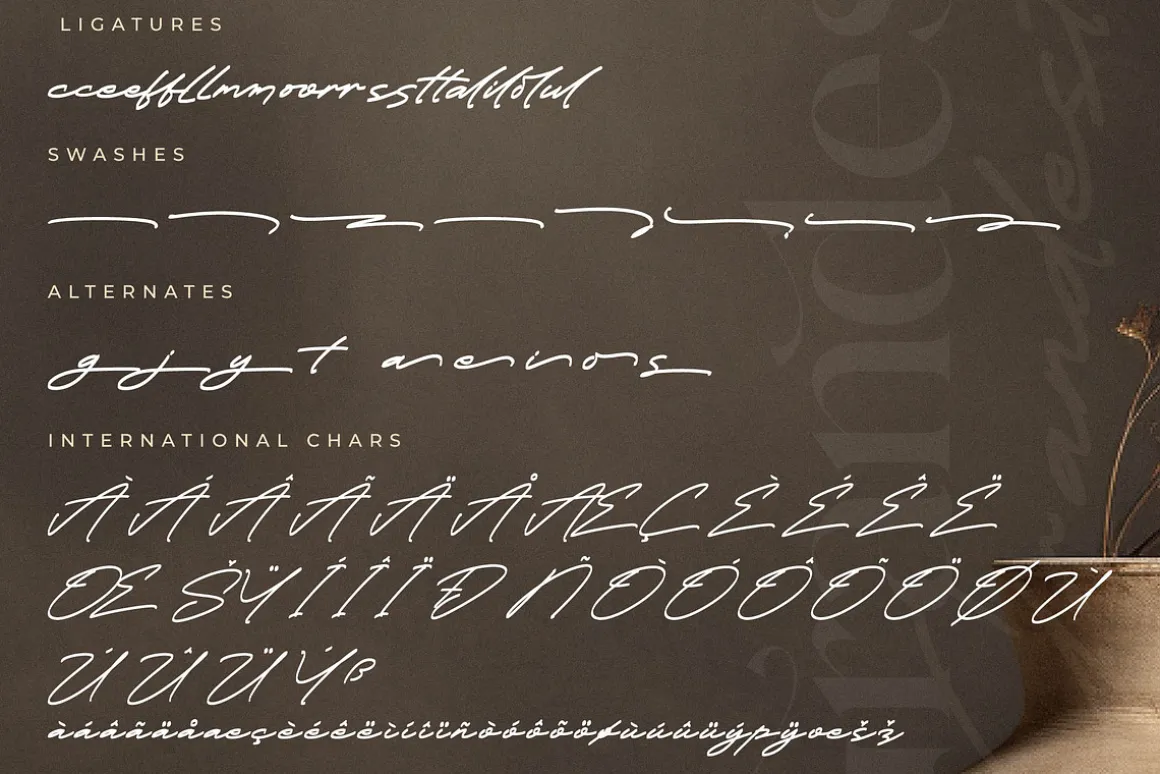 LIGATURES
cceeffllmmoorrssttalilolul
SWASHES
ALTERNATES
g j y t a e i o s
INTERNATIONAL CHARS
À Á Â Ã Ä Å Æ Ç È É Ê Ë
Œ Š Ÿ Í Î Ï Ð Ñ Ò Ó Ô Õ Ö Ø Ù
Ú Û Ü Ý ß
àáâãäåæçèéêëìíîïñòóôõöøùúûüýþÿœšž